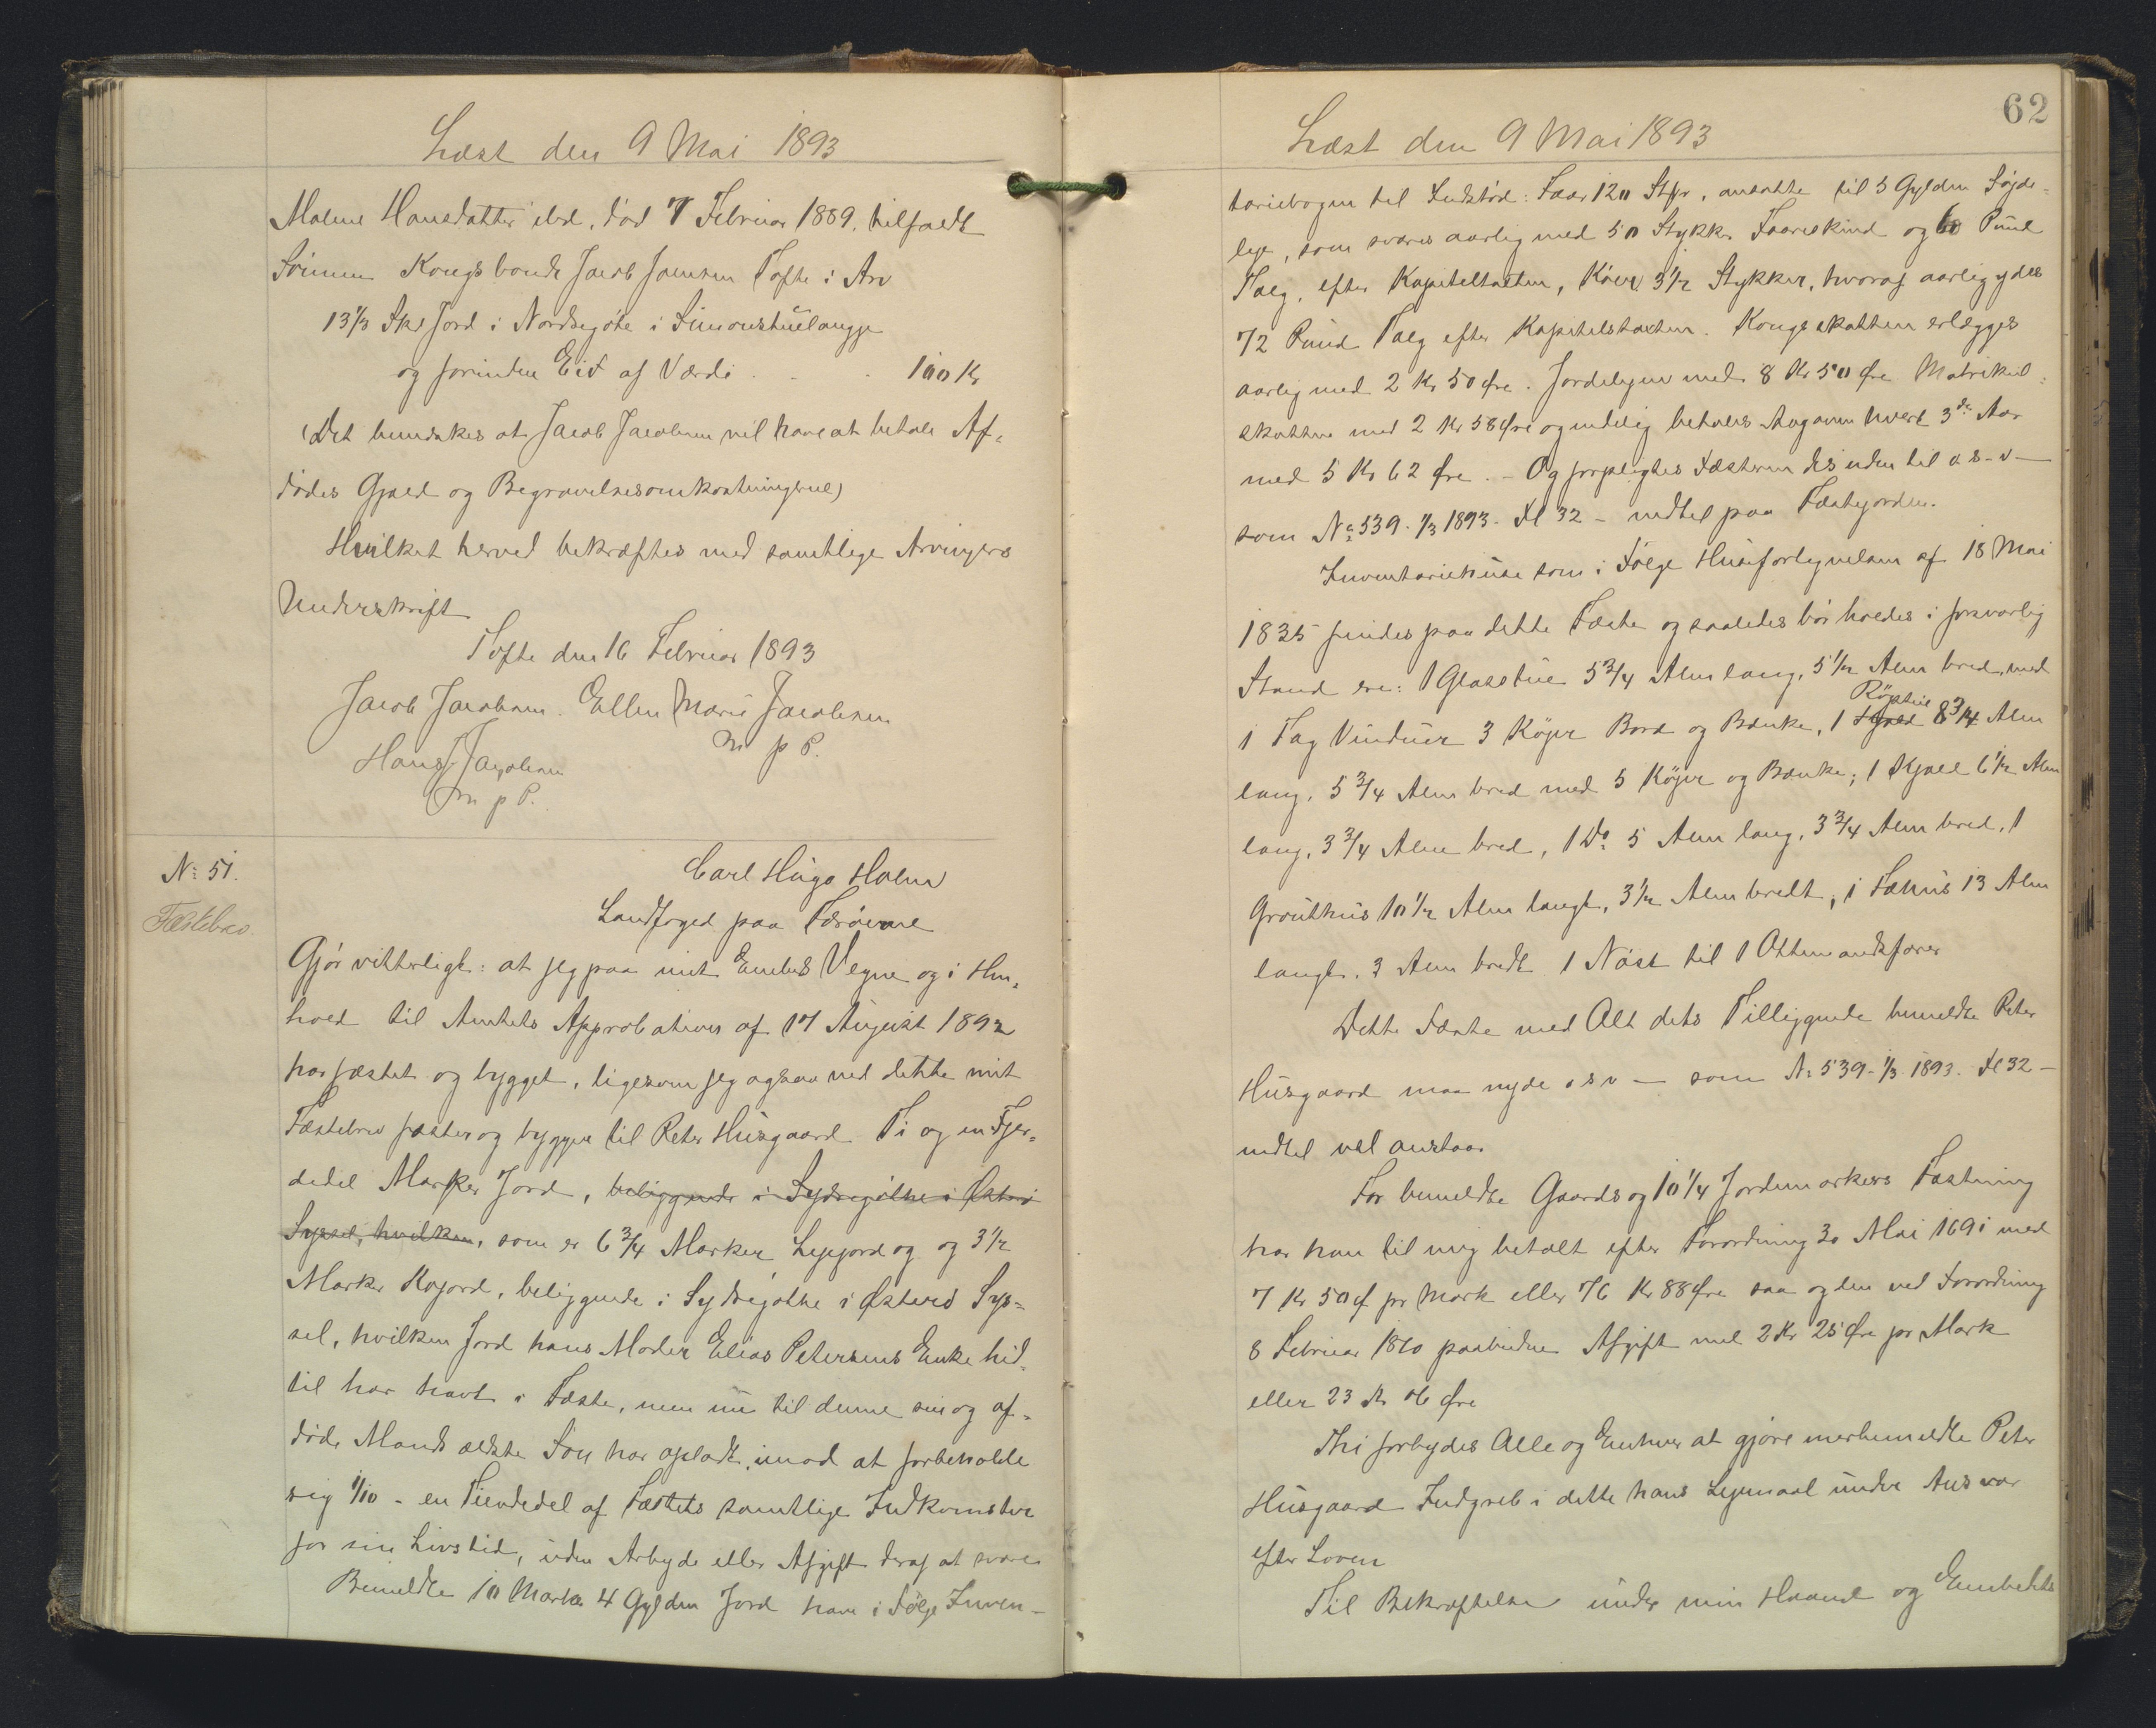 Læst den 9 Mai 1893
Malene Hansdatter ibd. død 7 Februar 1889, tilfaldt
Sønnen Kongsbonde Jacob Joensen Tofte i Arv
13 1/3 Skd Jord i Nordregøte i Simonstuelaugge
og forinden Eid af Værdi . . . 100 Kr
(Det bemærkes at Jacob Jacobsen vil have at betale Af-
dødes Gjæld og Begravelsesomkostningerne)
Hvilket herved bekræftes med samtlige Arvingers
Underskrift
Tofte den 16 Februar 1893
Jacob Jacobsen. Ellen Marie Jacobsen
Hans J Jacobsen m p P.
m p P.
No 51.
Fæstebrev.
Carl Hugo Holm
Landfoged paa Færøerne
Gjør vitterligt: at jeg paa mit Embeds Vegne og i Hen-
hold til Amtets Approbation af 17 August 1892
har fæstet og bygget, ligesom jeg ogsaa ved dette mit
Fæstebrev fæster og bygger til Peter Husgaard Ti og en Fjer-
dedel Marker Jord, beliggende i Sydregøthe i Østerø
Syssel, hvilken, som er 6 3/4 Marker Lejejord og og 3 1/2
Marker Kojord, beliggende i Sydregøthe i Østerø Sys-
sel, hvilken Jord hans Moder Elias Petersens Enke hid-
til har havt i Fæste, men nu til denne sin og af-
døde Mands ældste Søn har opladt, imod at forbeholde
sig 1/10 - en Tiendedel af Fæstets samtlige Indkomster
for sin Livstid, uden Arbyde eller Afgift deraf at svare
Bemeldte 10 Marker 4 Gylden Jord have i Følge Inven-
62
Læst den 9 Mai 1893
tariebogen til Indstød: Faar 120 Stkr, ansatte til 5 Gylden Søjde-
leje, som svares aarlig med 50 Stykker Faareskind og 60 Pund
Talg, efter Kapiteltaxten, Køer 3 1/2 Stykker, hvoraf aarlig ydes
72 Pund Talg efter Kapitelstaxten. Kongsskatten erlægges
aarlig med 2 Kr 50 Øre. Jordelejen med 8 Kr 50 Øre Matrikul-
skatten med 2 Kr 58 Øre og endelig betales hvert 3de Aar
med 5 Kr 62 Øre. - Og forpligtes Fæsteren desuden til o s - v -
som No 539. 1/3 1893. Fl 32 - indtil paa Fæstejorden.
Inventariehuse som i Følge Husefortegnelsen af 18 Mai
1835 findes paa dette Fæste og saaledes bør holdes i forsvarlig
Stand ere: 1 Glasstue 5 3/4 Alen lang, 5 1/2 Alen bred, med
1 Fag Vinduer 3 Køjer Bord og Bænke, 1 Røgstue 8 3/4 Alen
lang, 5 3/4 Alen bred med 5 Køjer og Bænke; 1 Kjæld 6 1/2 Alen
lang, 3 3/4 Alen bred, 1 Do 5 Alen lang, 3 3/4 Alen bred, 1
Grouthus 10 1/2 Alen langt, 3 1/2 Alen bredt, 1 Fæhus 13 Alen
langt. 3 Alen bredt 1 Nøst til 1 Ottemandsfarer
Dette Fæste med Alt dets Tilliggende bemeldte Peter
Husgaard maa nyde o s v - som No 539 - 1/3 1893. Fl 32 -
indtil vel anstaar
For bemeldte Gaards og 10 1/4 Jordemarkers Fæstning
har han til mig betalt efter Forordning 30 Mai 1691 med
7 Kr 50 Ø pr Mark eller 76 Kr 88 Øre saa og den ved Forordning
8 Februar 1810 paabudne Afgift med 2 Kr 25 Øre pr Mark
eller 23 Kr 06 Øre
Thi forbydes Alle og Enhver at gjøre merbemeldte Peter
Husgaard Indgreb i dette hans Lejemaal under Ansvar
efter Loven
Til Bekræftelse under min Haand og Embedets